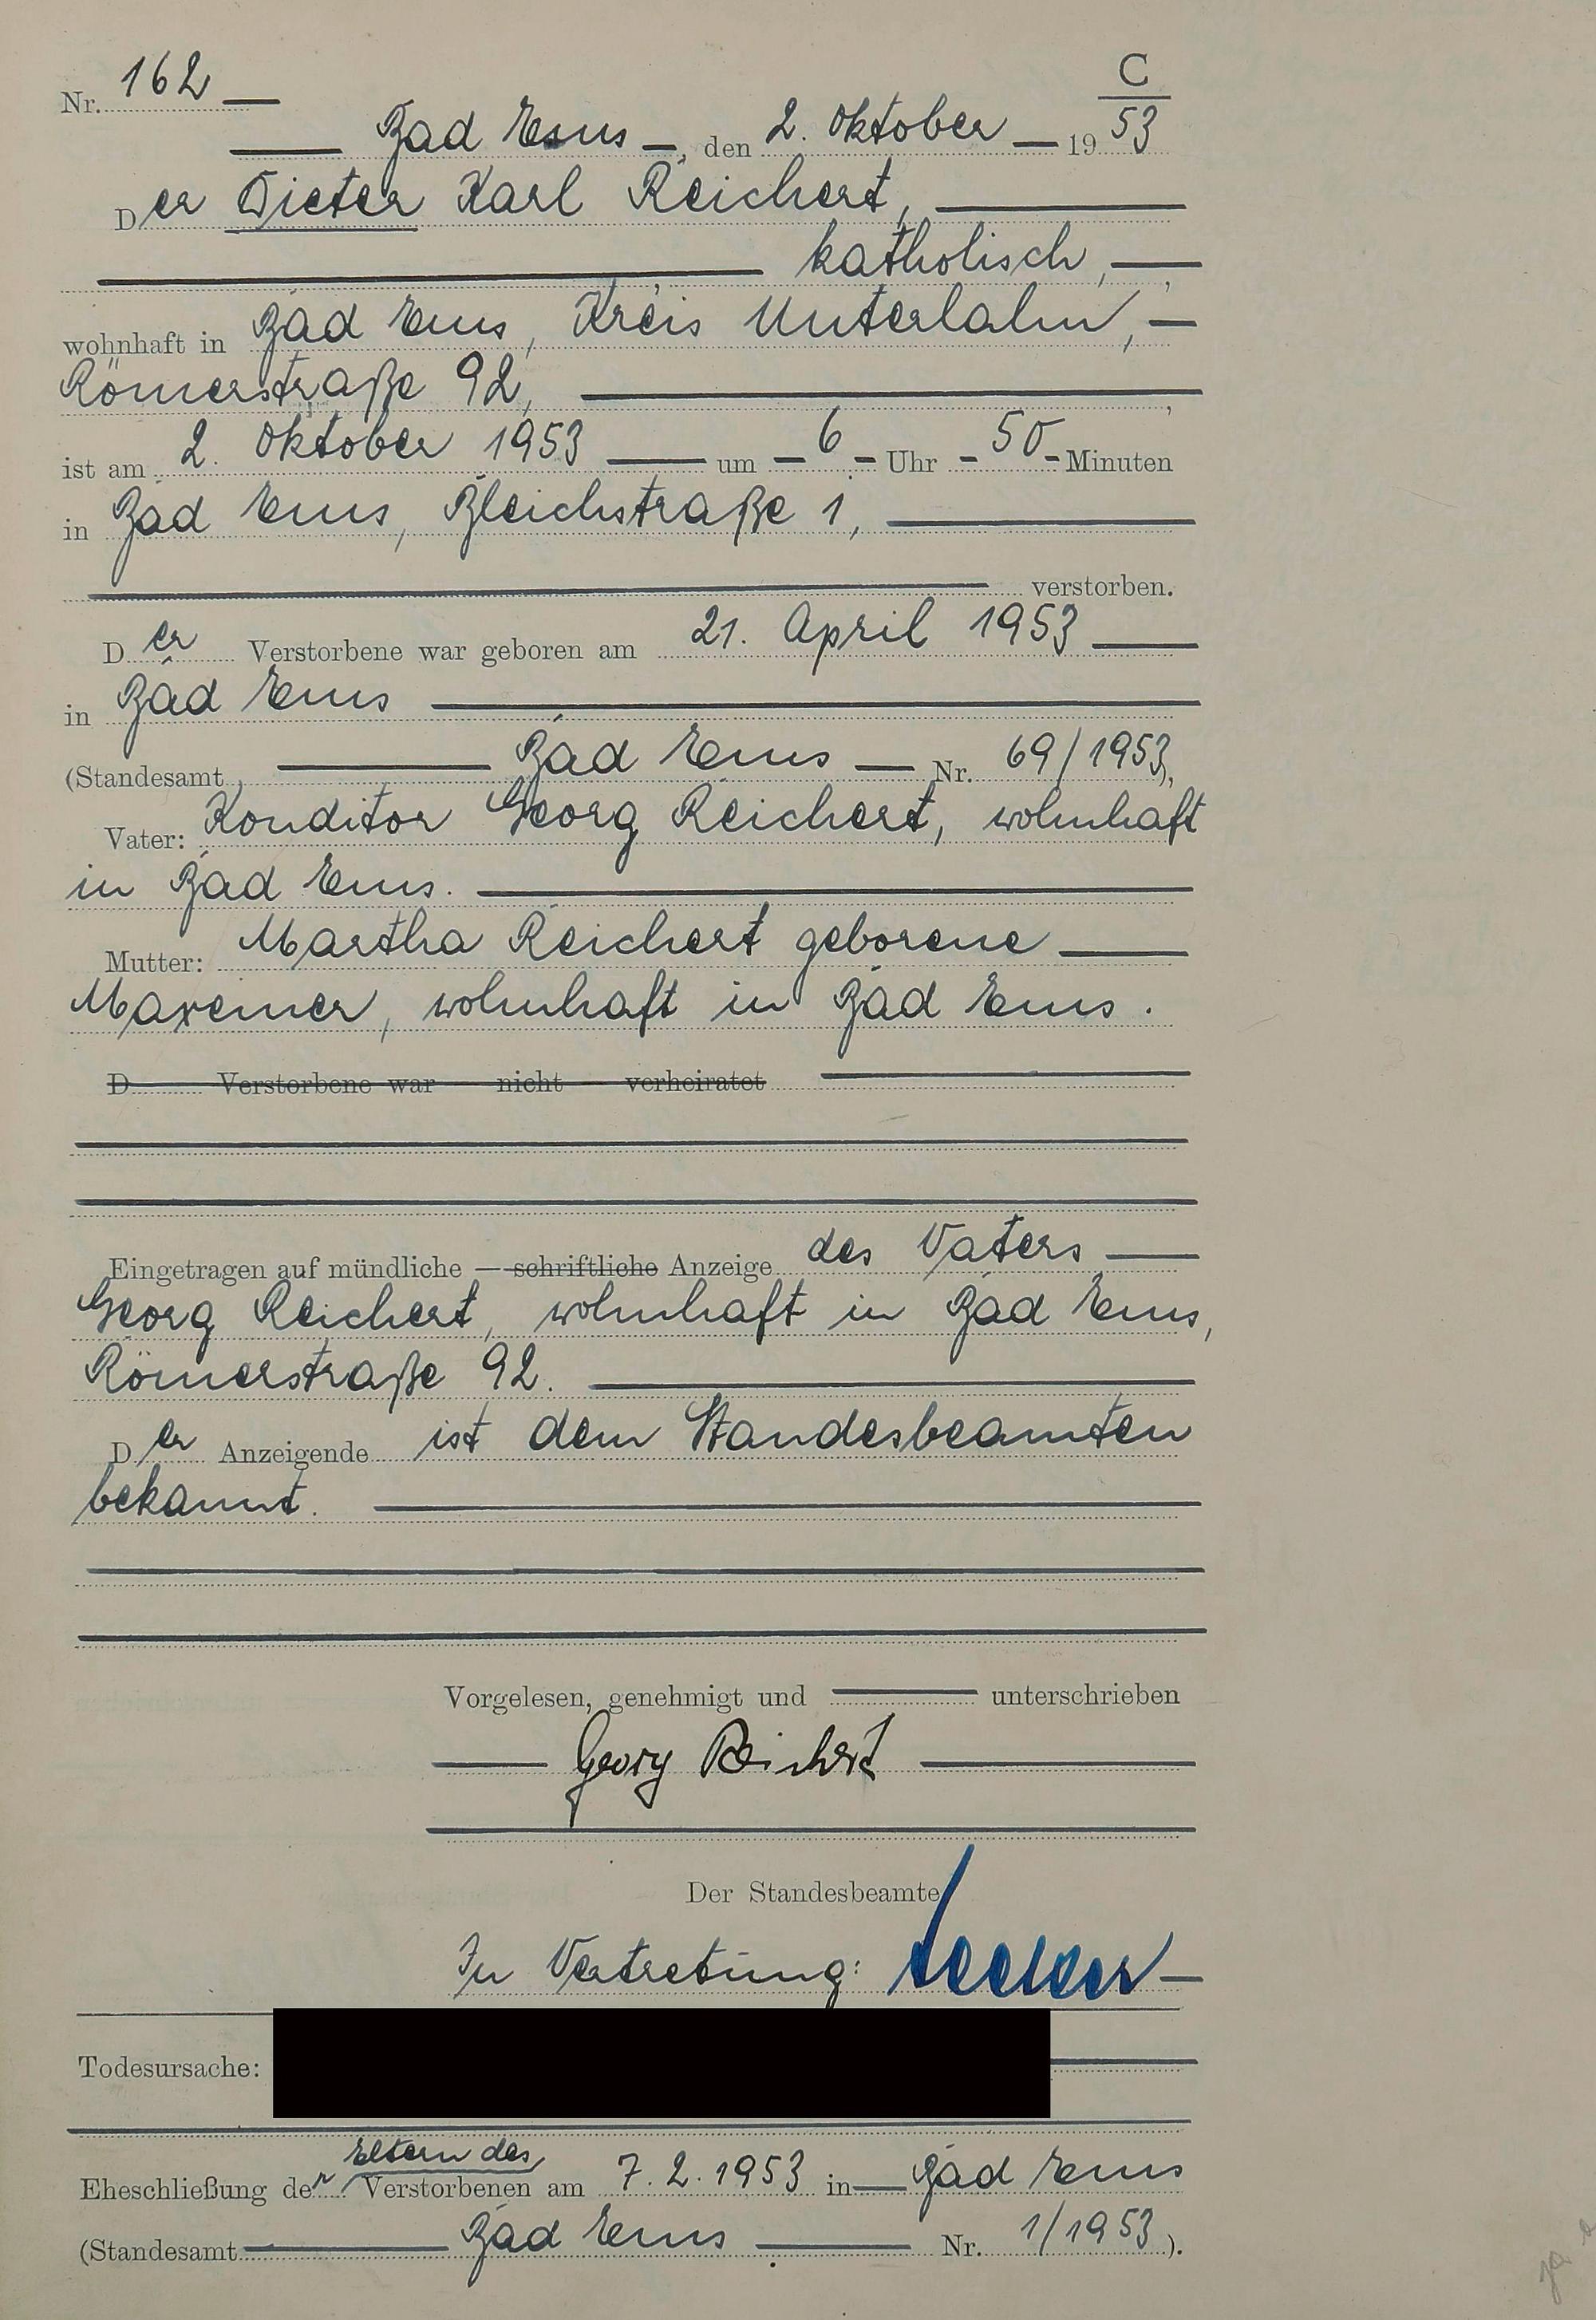 C
Nr. 162
Bad Ems, den 2. Oktober 19 53
Der Dieter Karl Reichert,
katholisch,
wohnhaft in Bad Ems, Kreis Unterlahn,
Römerstraße 92,
ist am 2. Oktober 1953 um 6 Uhr 50 Minuten
in Bad Ems, Bleichstraße 1,
verstorben.
Der Verstorbene war geboren am 21. April 1953
in Bad Ems
(Standesamt Bad Ems Nr. 69/1953),
Vater: Konditor Georg Reichert, wohnhaft
in Bad Ems.
Mutter: Martha Reichert geborene
Maxeiner, wohnhaft in Bad Ems.
D Verstorbene war nicht verheiratet
Eingetragen auf mündliche — schriftliche Anzeige des Vaters
Georg Reichert, wohnhaft in Bad Ems,
Römerstraße 92.
Der Anzeigende ist dem Standesbeamten
bekannt.
Vorgelesen, genehmigt und unterschrieben
Georg Reichert
Der Standesbeamte
In Vertretung:
Todesursache:
Eltern des
Eheschließung der Verstorbenen am 7.2.1953 in Bad Ems
(Standesamt Bad Ems Nr. 1/1953).